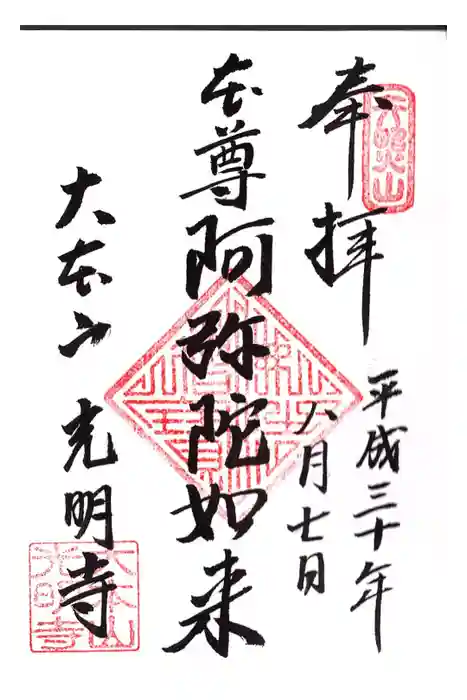 奉拝
天照山
平成三十年
八月七日
本尊阿弥陀如来
大本山 光明寺
大本山
光明寺